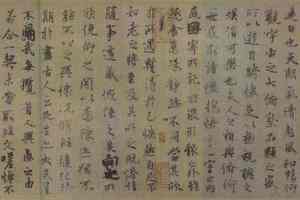 是日也天朗氣清惠風和暢仰
觀宇宙之大俯察品類之盛
所以遊目騁懷足以極視聽之
娛信可樂也夫人之相與俯仰
一世或取諸懷抱悟言一室之內
或因寄所託放浪形骸之外雖
趣舍萬殊靜躁不同當其欣
於所遇暫得於己快然自足不
知老之將至及其所之既惓情
隨事遷感慨係之矣向之所
欣俛仰之閒以為陳跡猶不
能不以之興懷況脩短隨化終
期於盡古人云死生亦大矣豈
不痛哉每攬昔人興感之由
若合一契未嘗不臨文嗟悼不